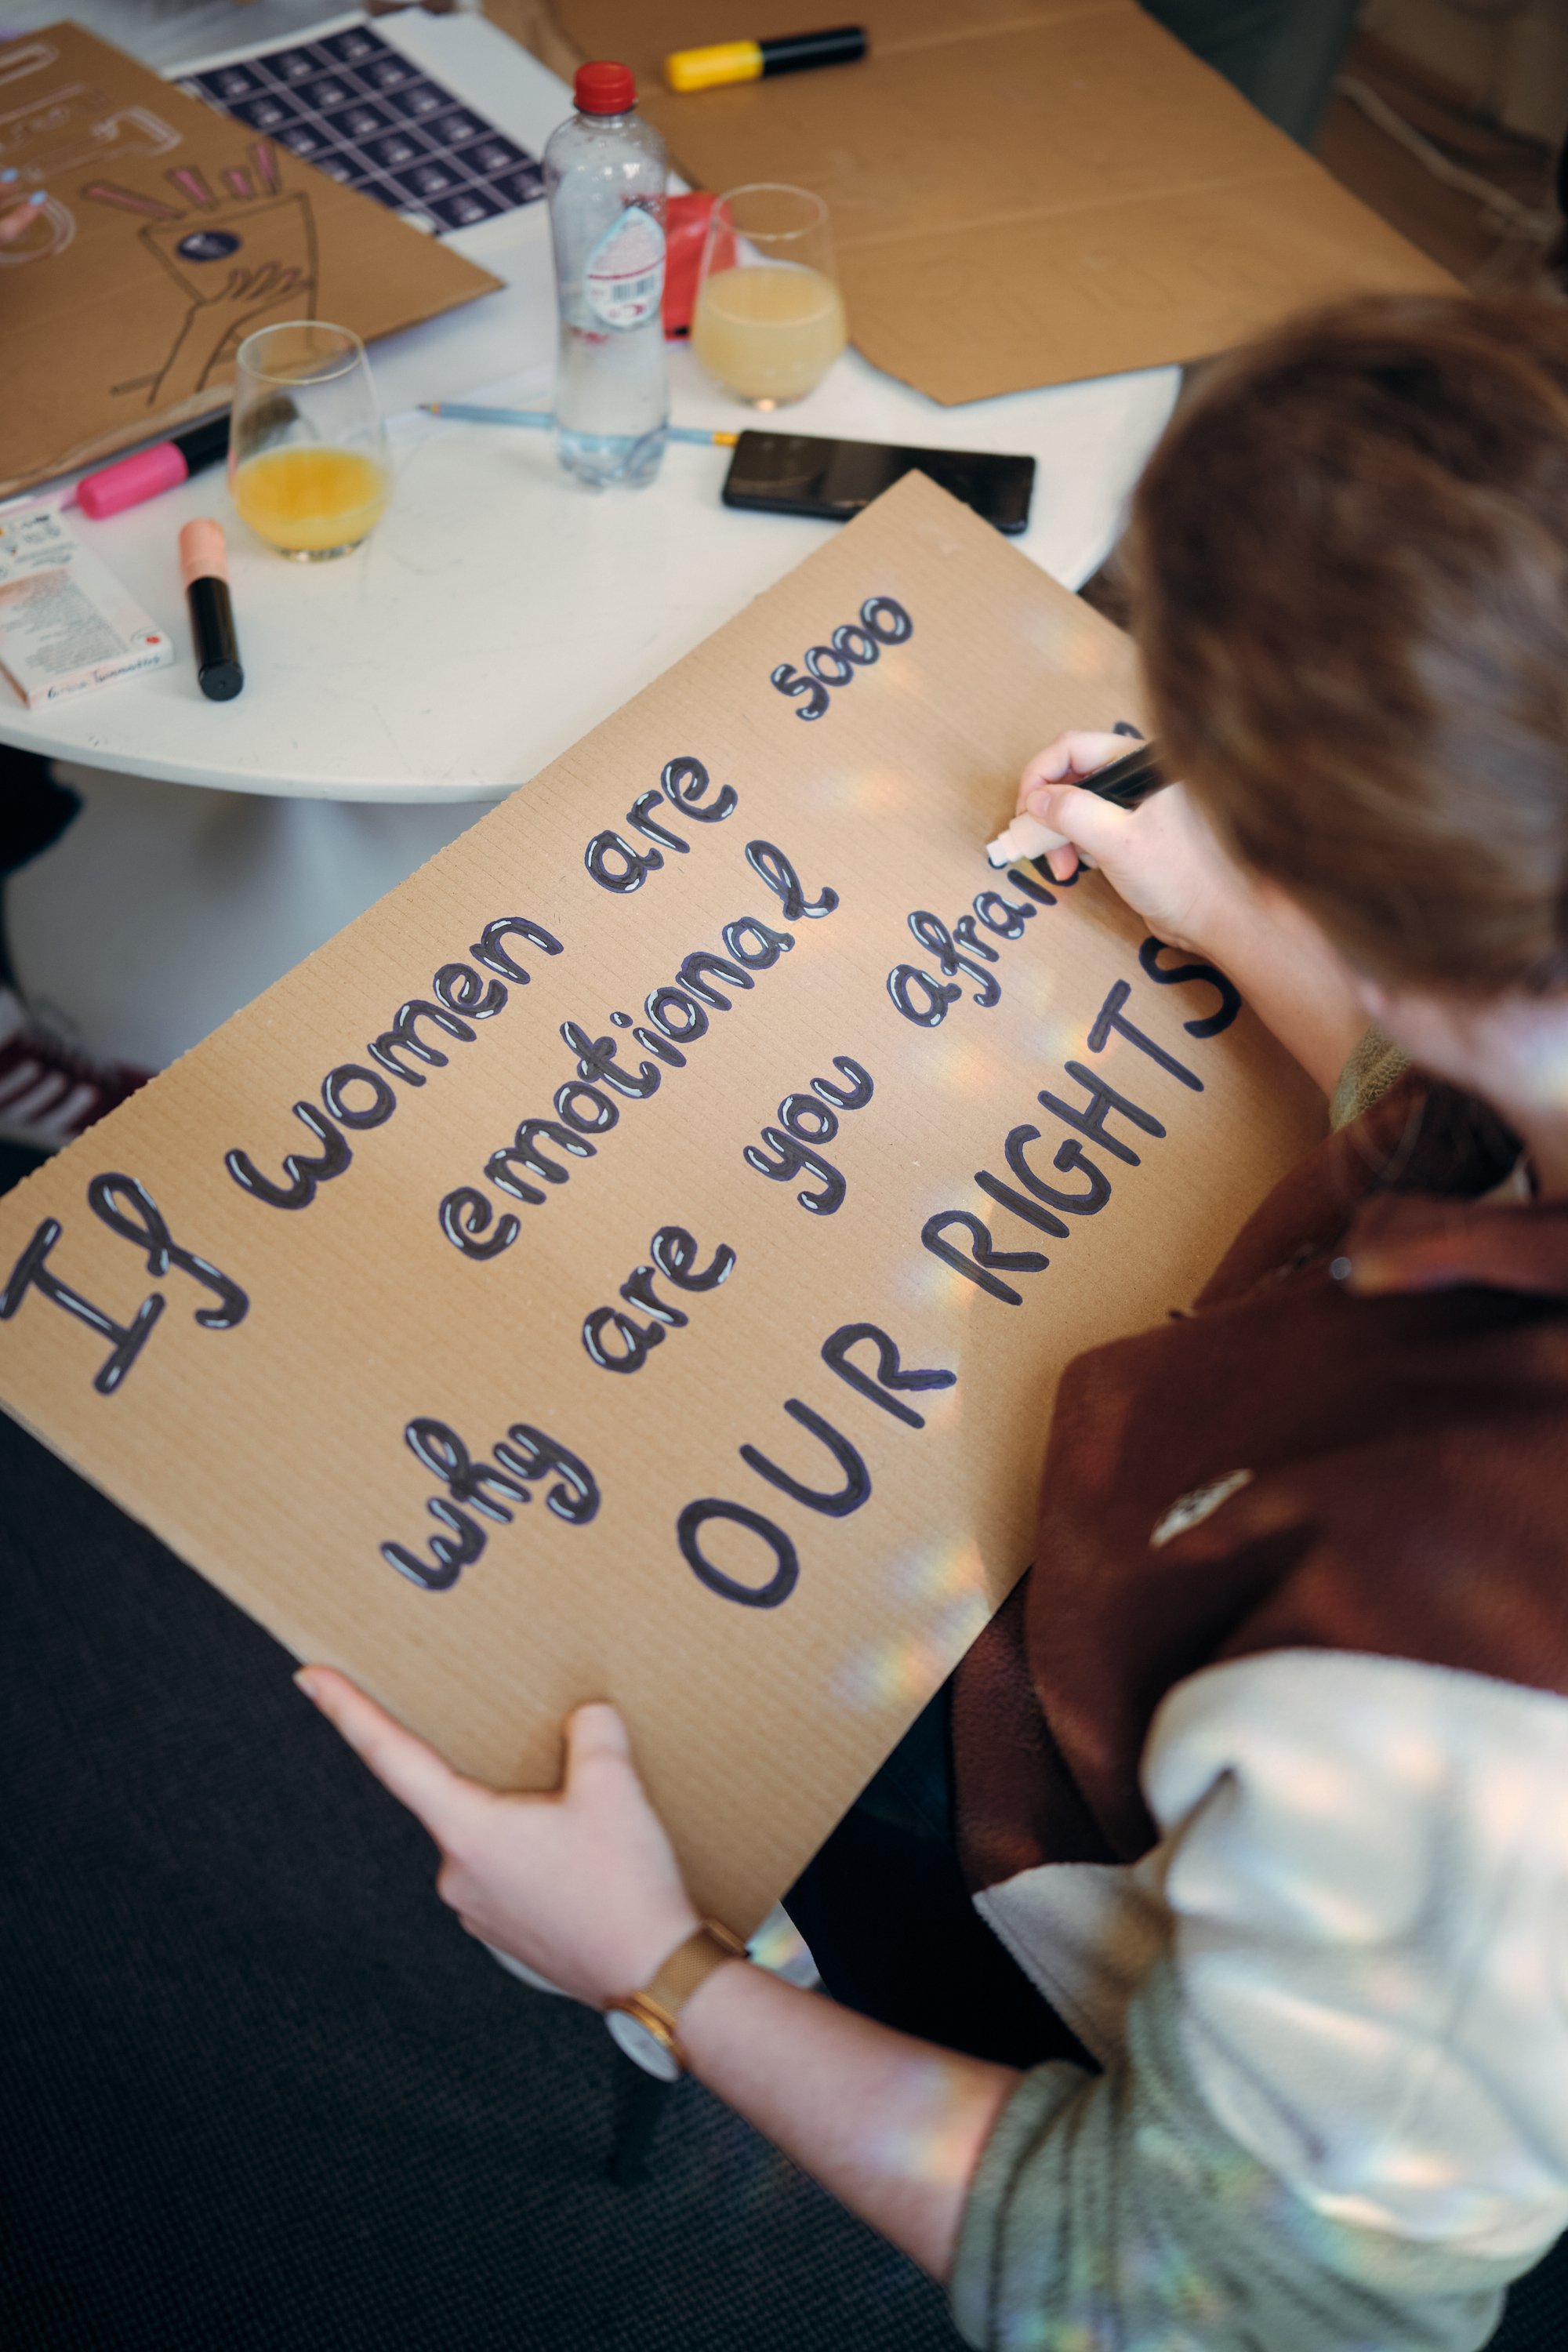 If women are sooo
emotional
why are you afraid
OUR RIGHTS